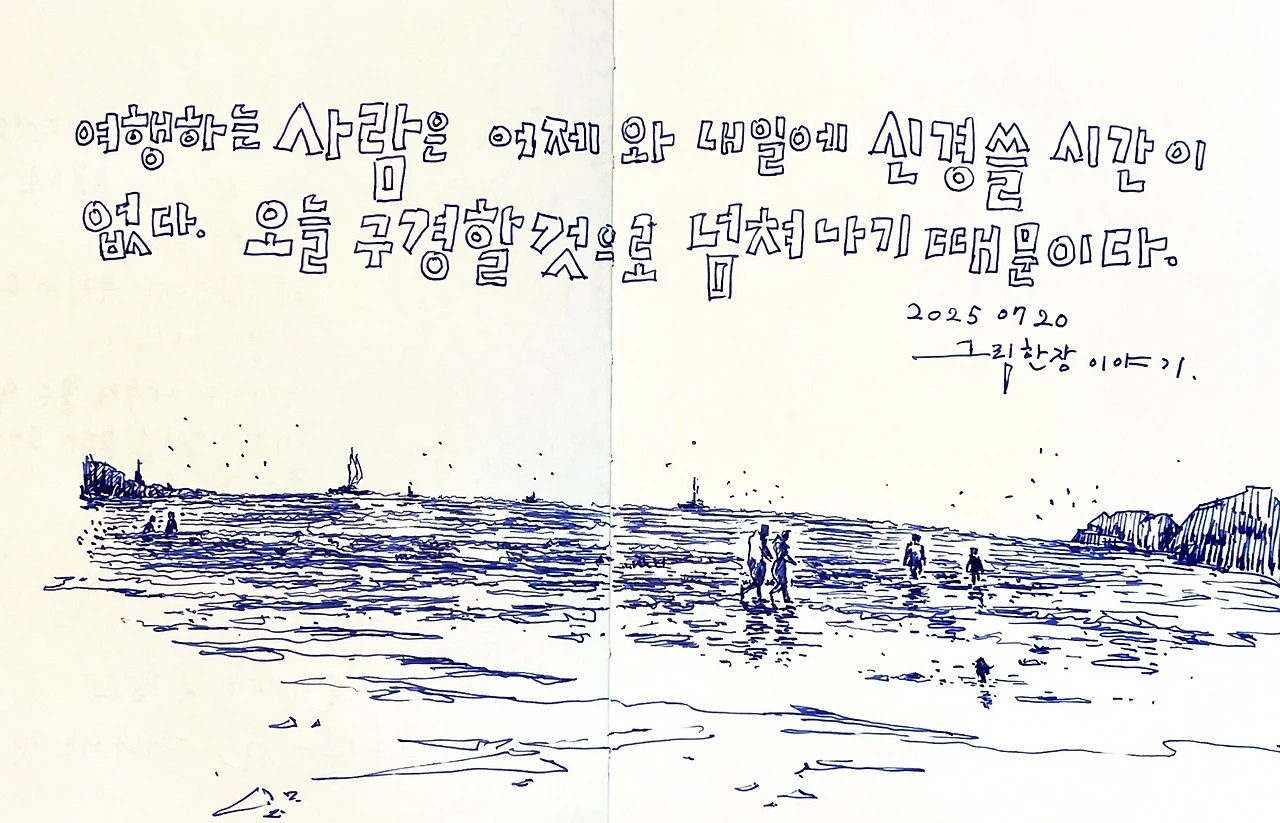 여행하는 사람은 어제와 내일에 신경쓸 시간이
없다. 오늘 구경할 것으로 넘쳐나기 때문이다.
2025 07 20
그림한장 이야기.